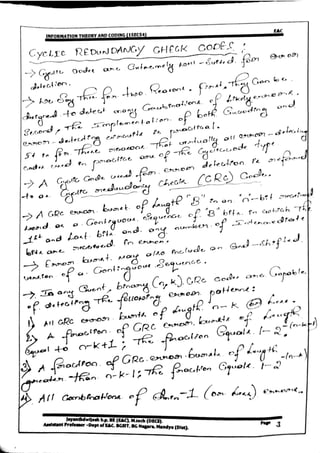 EAC
INFORMATION THEORY AND CODING (15EC54)
CYCLIC REDUNDANCY CHECK CODES :
→ Cyclic codes are Extremely well - suited for Error
detection.
→ We Say This for two Reasons. First, They Can be
designed to detect many Combinations of likely errors.
Second, The Implementation of both Encoding and
error - detecting circuits is practical.
It is for These reasons That virtually all error - detecting
codes used in practice are of the Cyclic code type
→ A Cyclic Code used for error detection is referred
to as Cyclic redundancy Check (CRC) Code.
→ A CRC error burst of length 'B' in an 'n'-bit received
word as a Contiguous Sequence of 'B' bits in which The
1st and Last bits and any number of Intermediate
bits are received in error.
→ Error burst may also include an End -shifted
version of a Contiguous Sequence.
→ In any Event, binary (n, k) CRC codes are Capable
of detecting The following error patterns :
1) All CRC error bursts of length n-k (or) less.
2) A fraction of CRC Error bursts of length
Equal to n-k+1 ; The fraction Equals 1-2
3) A fraction of CRC error-bursts of length
greater than n-k-1; The fraction Equals 1-2
4) All Combinations of dmin-1 (or less) errors.
Assistant Professor -Dept of E&C. BGSIT, BG Nagara, Mandya (Dist).
Page 1